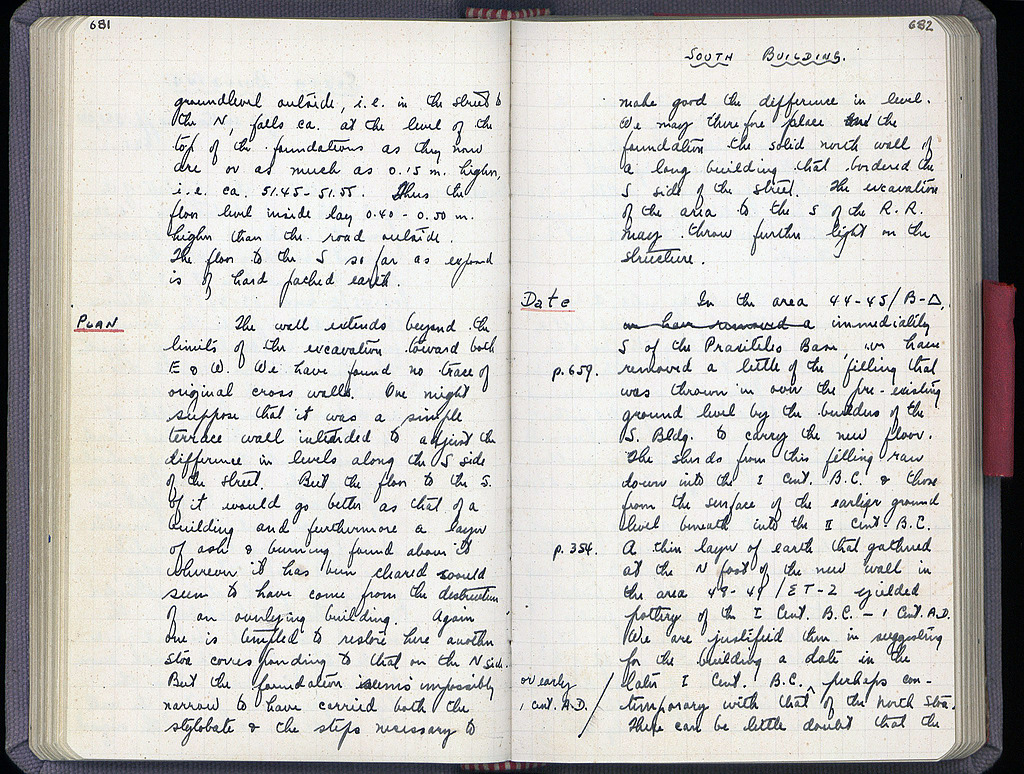 681
groundlevel outside, i.e. in the street to
the N, falls ca. at the level of the
top of the foundations as they now
are or as much as 0.15 m. higher,
i.e. ca. 51.45-51.55. Thus the
floor level inside lay 0.40 - 0.50 m.
higher than the road outside.
The floor to the S so far as exposed
is of hard packed earth.
PLAN
The wall extends beyond the
limits of the excavation toward both
E & W. We have found no trace of
original cross walls. One might
suppose that it was a simple
terrace wall intended to adjust the
difference in levels along the S side
of the street. But the floor to the S.
of it would go better as that of a
building and furthermore a layer
of ash & burning found above it
wherever it has been cleared would
seem to have come from the destruction
of an overlying building. Again
one is tempted to restore here another
stoa corresponding to that on the N side.
But the foundation seems impossibly
narrow to have carried both the
stylobate & the steps necessary to
682
SOUTH BUILDING.
make good the difference in level.
We may therefore place the
foundation the solid north wall of
a long building that bordered the
S side of the street. The excavation
of the area to the S of the R.R.
may throw further light on the
structure.
Date
In the area 44-45/B-Δ,
we have removed a immediately
S of the Praxiteles Base, we have
p.659. removed a little of the filling that
was thrown in over the pre-existing
ground level by the builders of the
S. Bldg. to carry the new floor.
The sherds from this filling ran
down into the I Cent. B.C. & those
from the surface of the earlier ground
level beneath into the II Cent. B.C.
p.354. A thin layer of earth that gathered
at the N foot of the new wall in
the area 48-49/ET-2 yielded
pottery of the I Cent. B.C. - 1 Cent. A.D.
We are justified then in suggesting
for the building a date in the
or early
1 cent. A.D. / later I Cent. B.C. perhaps con-
temporary with that of the North Stoa.
There can be little doubt that the